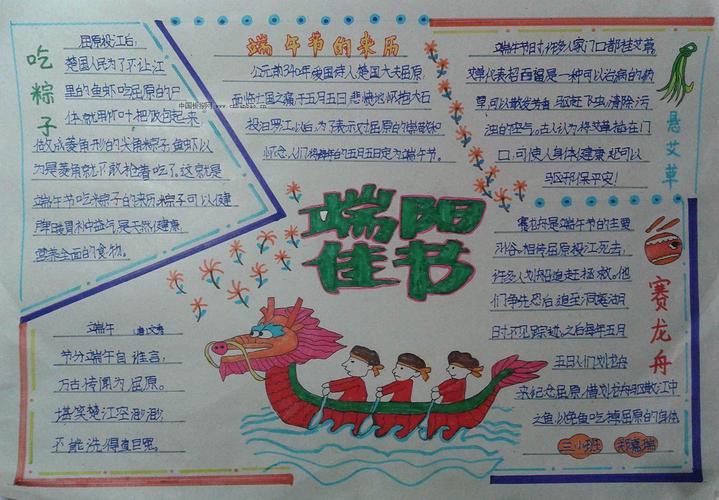 吃粽子
屈原投江后，
楚国人民为了不让江
里的鱼虾吃屈原的尸
体，就用竹叶把饭包起来
做成菱角形的尖角粽子，鱼虾以
为是菱角就不敢抢着吃了。这就是
端午节吃粽子的来历。粽子可以健
脾胃补中益气，是天然健康
营养全面的食物。
端午节的来历
公元前340年，爱国诗人、楚国大夫屈原，
面临亡国之痛于五月五日，悲愤地怀抱大石
投汨罗江，以后，为了表示对屈原的崇敬和
怀念，人们将每年的五月五日定为端午节。
端午节时，许多人家门口都挂艾草，
艾草代表招百福，是一种可以治病的药
草，可以散发芳香，驱赶飞虫，清除污
浊的空气。古人认为将艾草插在门
口，可使人身体健康，还可以
驱邪保平安！
悬艾草
端阳
佳节
赛龙舟是端午节的主要
习俗。相传屈原投江死去，
许多人划船追赶拯救。他
们争先恐后追至洞庭湖
时不见踪迹。之后每年五月
五日人们划龙舟
来纪念屈原。借划龙舟驱散江中
之鱼，以免鱼吃掉屈原的身体
赛龙舟
三小班
端午
唐 文秀
节分端午自谁言，
万古传闻为屈原。
堪笑楚江空渺渺，
不能洗得直臣冤。